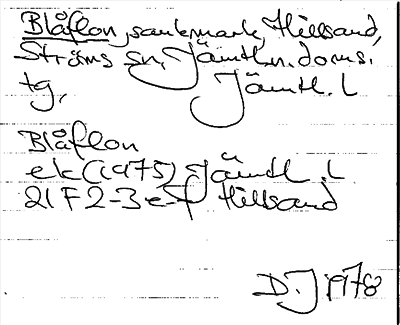 Blåflon, sankmark, Hillsand,
Ströms sn, Jämtl. n. doms.
tg, Jämtl. L
Blåflon
ek (1975) Jämtl. L
21 F 2-3 e-f Hillsand
D. J 1978